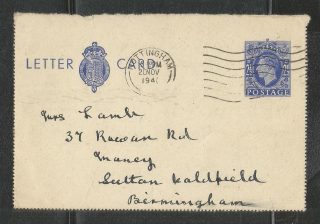 LETTER CARD
NOTTINGHAM
PM
20 NOV
194
POSTAGE
Mrs Lamb
37 Rowan Rd
Maney
Sutton Coldfield
Birmingham